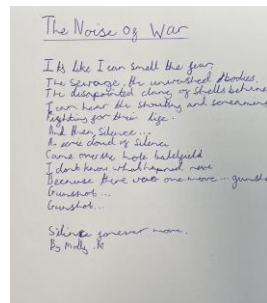 The Noise of War
Its like I can smell the fear,
The sewrage, the unwashed bodies.
The disapointed clang of shells behind
I can hear the shouting and screaming
Fighting for their life.
And then, silence...
A eerie cloud of silence
Came over the hole batelfield
I dont know what hapend next
Because there was one more... gunshot
Gunshot...
Gunshot...
Silince forever more.
By Molly